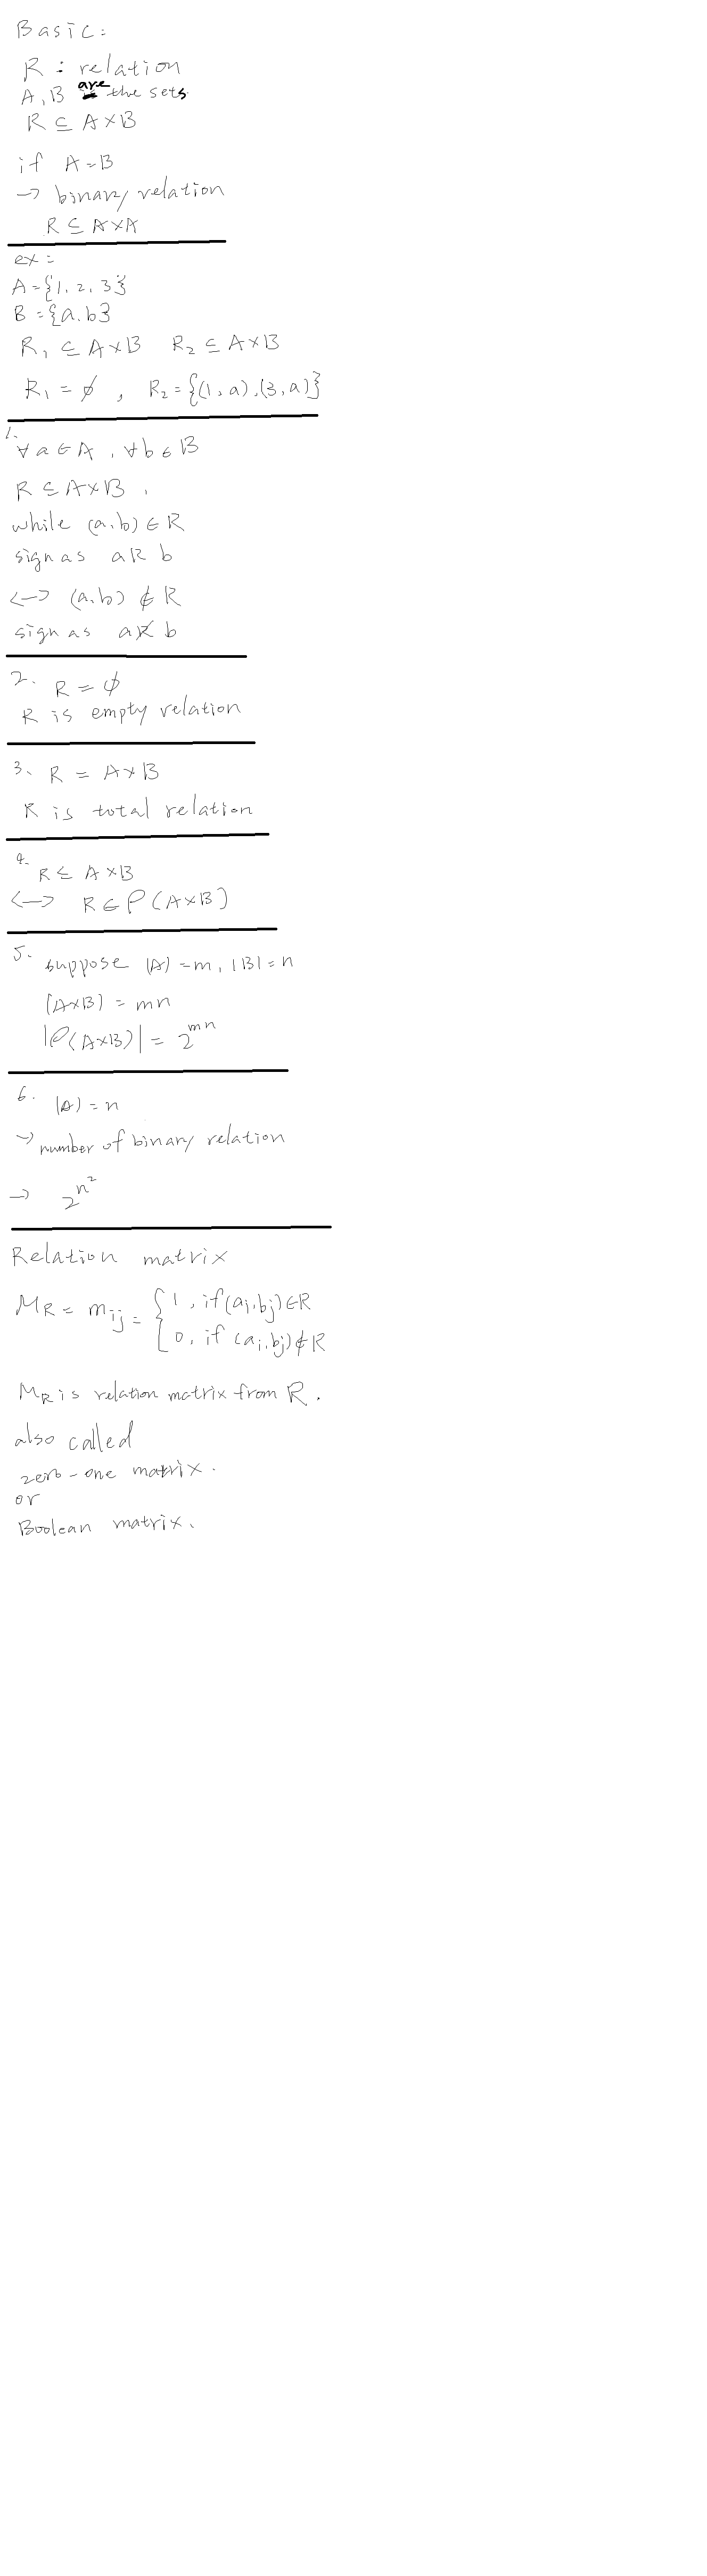 Basic:
R : relation
A, B are the sets.
R ⊆ A×B
if A=B
→ binary relation
R ⊆ A×A
ex:
A={1, 2, 3}
B={a, b}
R₁ ⊆ A×B R₂ ⊆ A×B
R₁ = ∅ , R₂={(1, a), (3, a)}
1.
∀a∈A , ∀b∈B
R ⊆ A×B ,
while (a,b) ∈ R
sign as aRb
<-> (a,b) ∉ R
sign as aR̸b
2. R = ∅
R is empty relation
3. R = A×B
R is total relation
4. R ⊆ A×B
<-> R∈P(A×B)
5. suppose |A|=m, |B|=n
|A×B| = mn
|P(A×B)| = 2^mn
6. |A|=n
→ number of binary relation
→ 2^n²
Relation matrix
M_R = m_ij = { 1, if (a_i, b_j)∈R
0, if (a_i, b_j)∉R
M_R is relation matrix from R.
also called
zero-one matrix.
or
Boolean matrix.